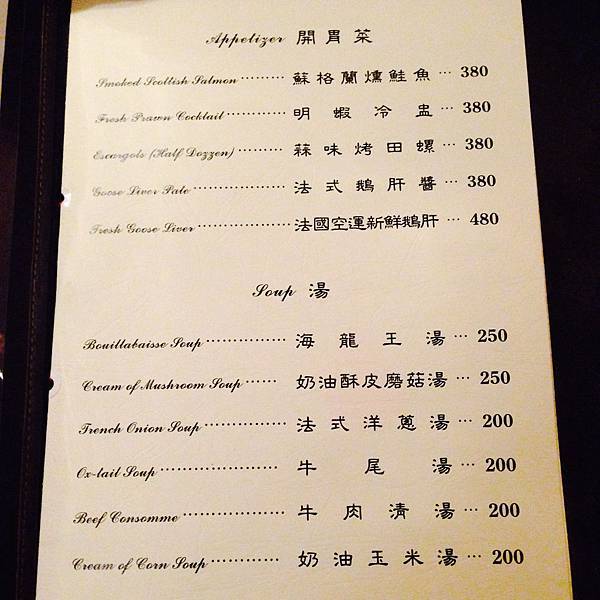 Appetizer 開胃菜
Smoked Scottish Salmon ········· 蘇格蘭燻鮭魚 ··· 380
Fresh Prawn Cocktail ············ 明蝦冷盅 ··· 380
Escargots (Half Dozzen) ·········· 蒜味烤田螺 ··· 380
Goose Liver Pate ·················· 法式鵝肝醬 ··· 380
Fresh Goose Liver ·················· 法國空運新鮮鵝肝 ··· 480
Soup 湯
Bouillabaisse Soup ··············· 海龍王湯 ··· 250
Cream of Mushroom Soup ······ 奶油酥皮磨菇湯 ··· 250
French Onion Soup ··············· 法式洋蔥湯 ··· 200
Ox-tail Soup ····················· 牛尾湯 ··· 200
Beef Consomme ·················· 牛肉清湯 ··· 200
Cream of Corn Soup ············ 奶油玉米湯 ··· 200